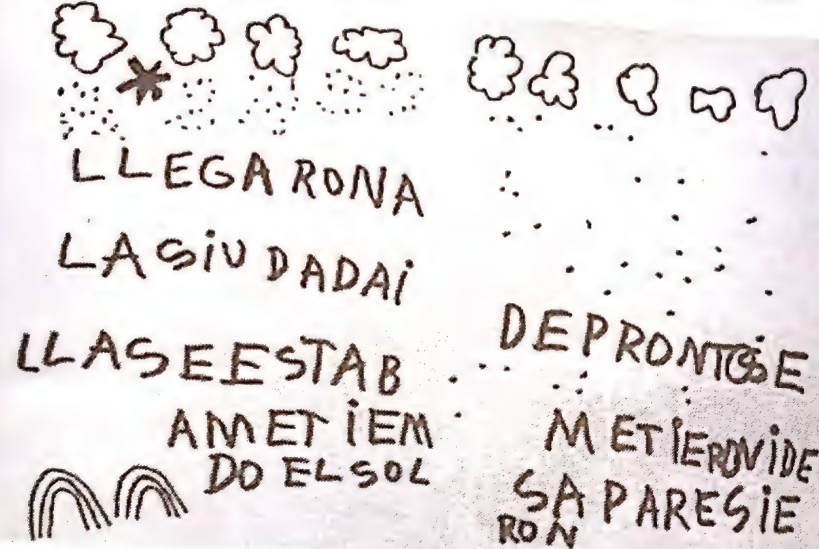 LLEGARONA
LASIUDADAI
LLASEESTAB
AMETIEMDO EL SOL
DEPRONTOSE
METIERONIDE
SAPARESIERON